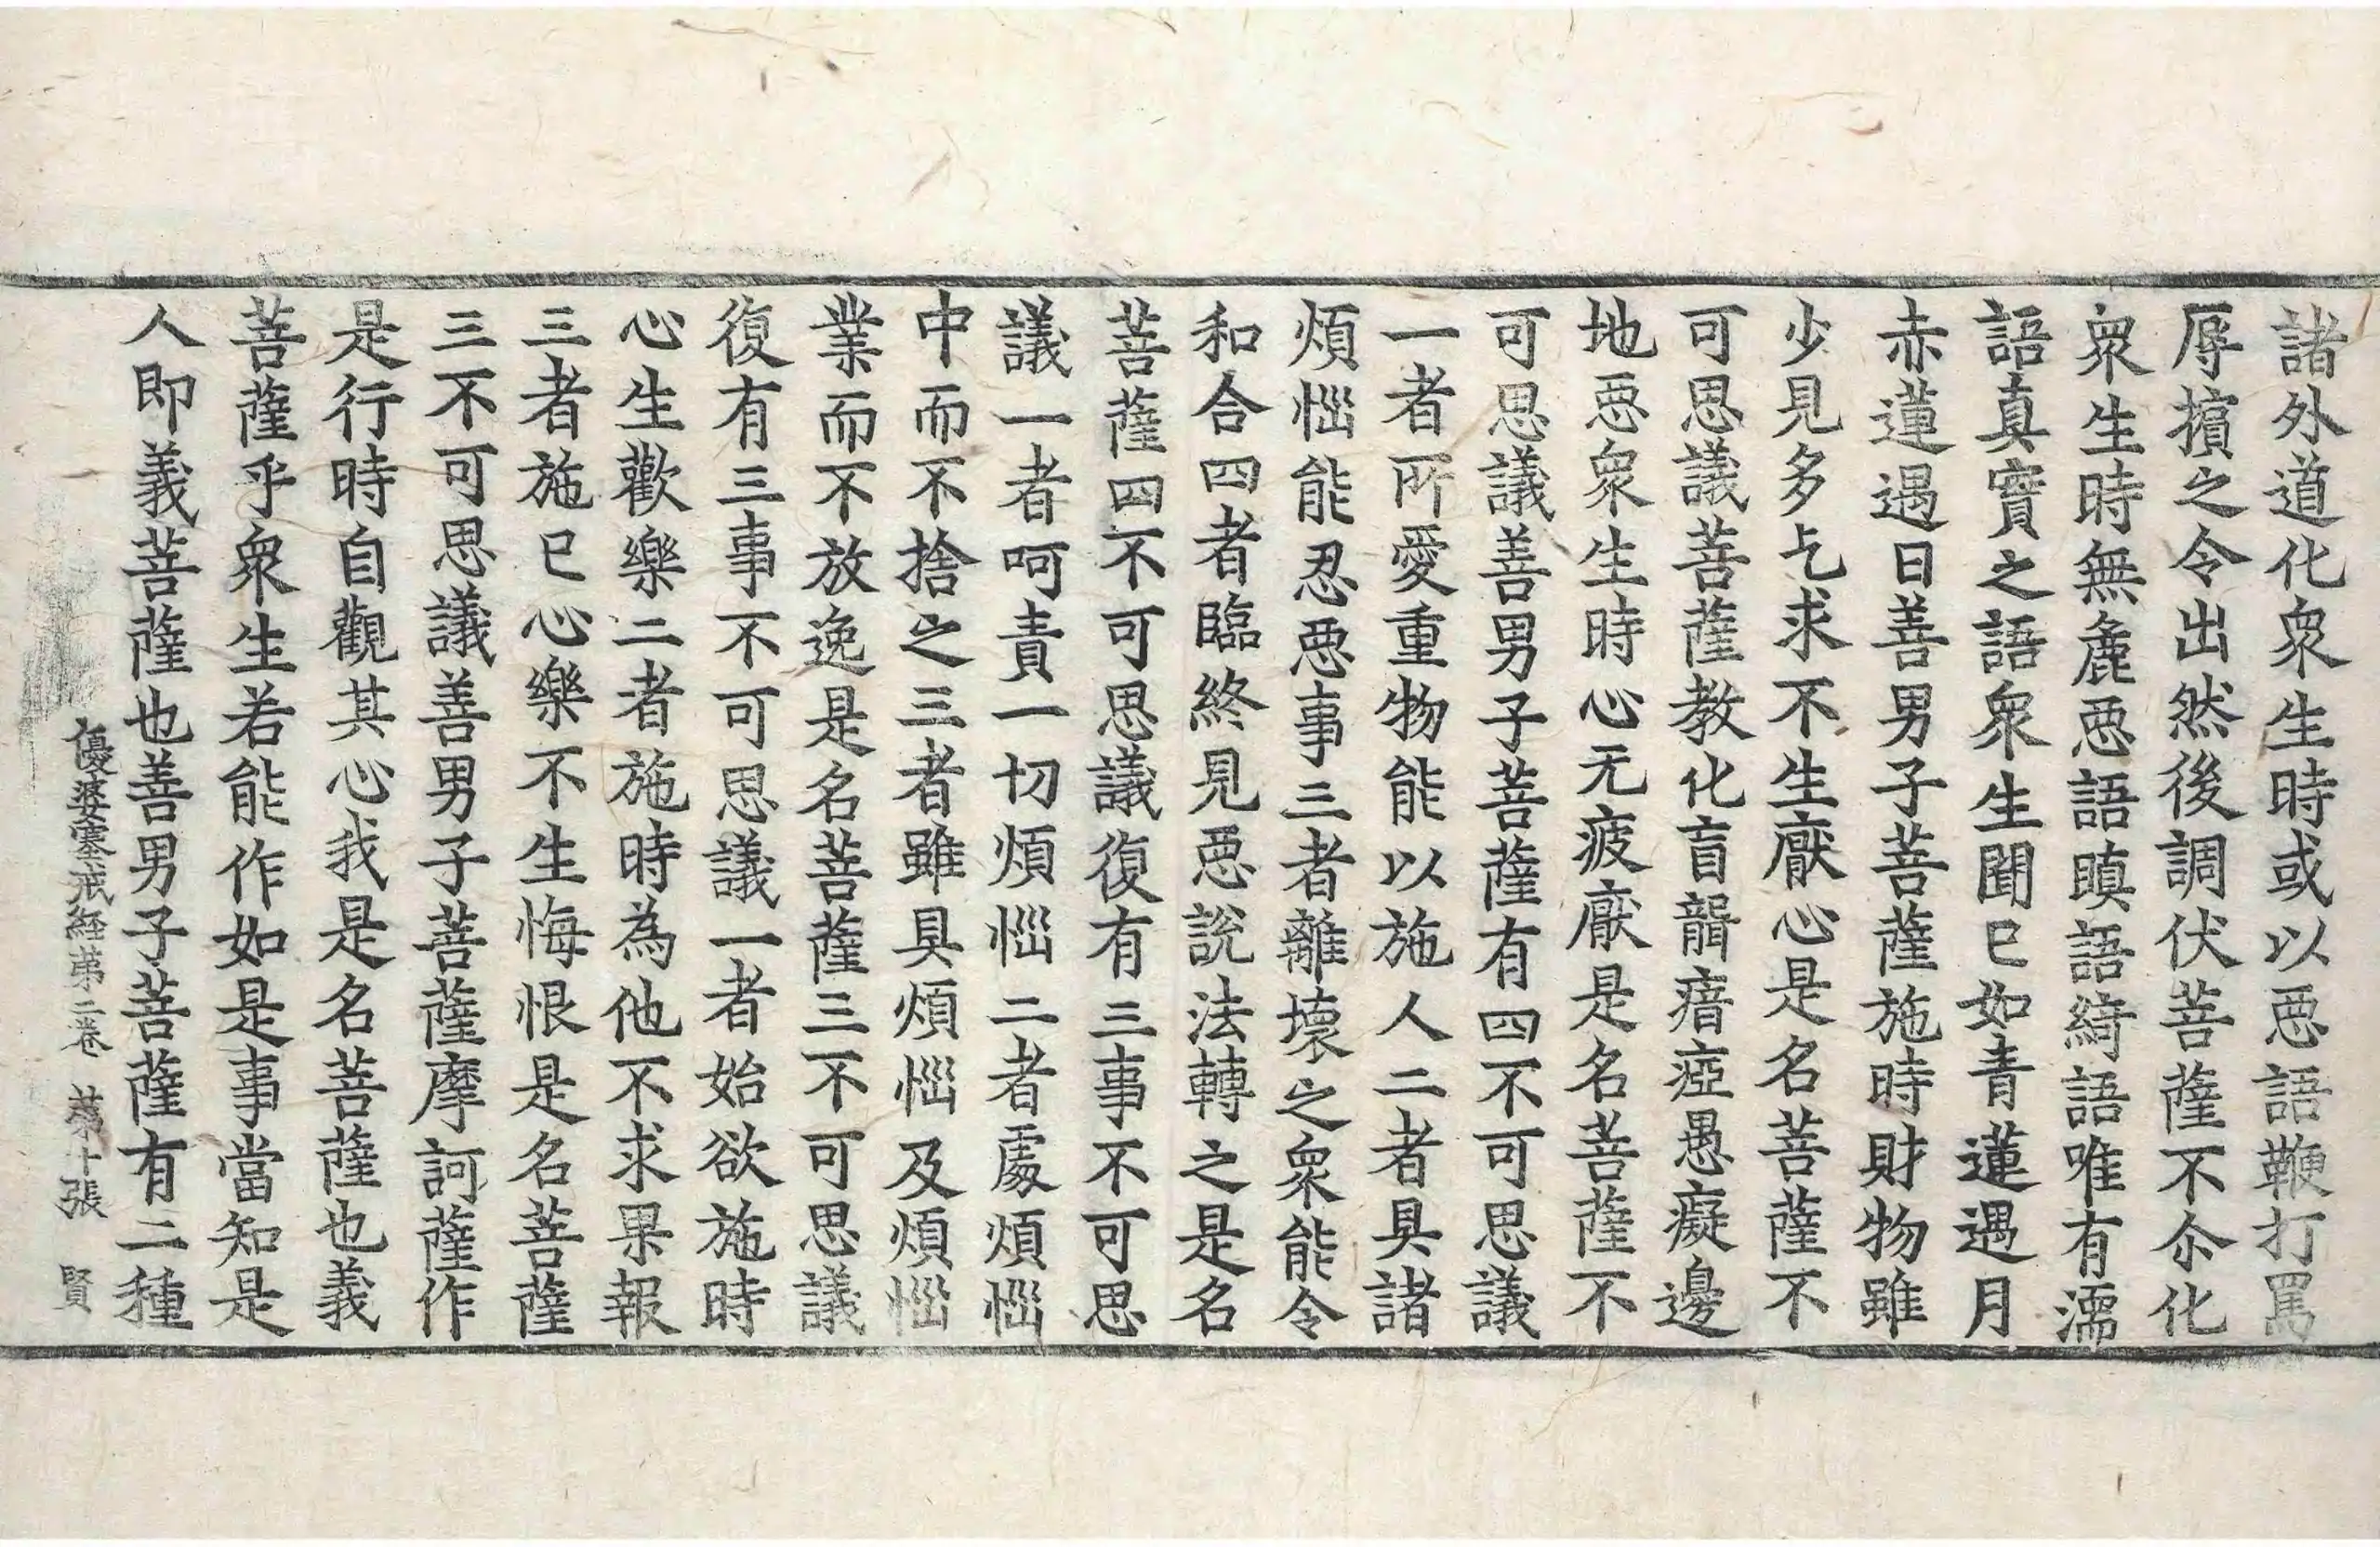 諸外道化衆生時或以惡語鞭打罵
辱擯之令出然後調伏菩薩不尒化
衆生時無麁惡語瞋語綺語唯有濡
語真實之語衆生聞已如青蓮遇月
赤蓮遇日善男子菩薩施時財物雖
少見多乞求不生厭心是名菩薩不
可思議菩薩教化盲聾瘖瘂愚癡邊
地惡衆生時心无疲厭是名菩薩不
可思議善男子菩薩有四不可思議
一者所愛重物能以施人二者具諸
煩惱能忍惡事三者離壞之衆能令
和合四者臨終見惡說法轉之是名
菩薩四不可思議復有三事不可思
議一者呵責一切煩惱二者處煩惱
中而不捨之三者雖具煩惱及煩惱
業而不放逸是名菩薩三不可思議
復有三事不可思議一者始欲施時
心生歡樂二者施時為他不求果報
三者施已心樂不生悔恨是名菩薩
三不可思議善男子菩薩摩訶薩作
是行時自觀其心我是名菩薩也義
菩薩乎衆生若能作如是事當知是
人即義菩薩也善男子菩薩有二種
優婆塞戒経第二卷 第十張 賢